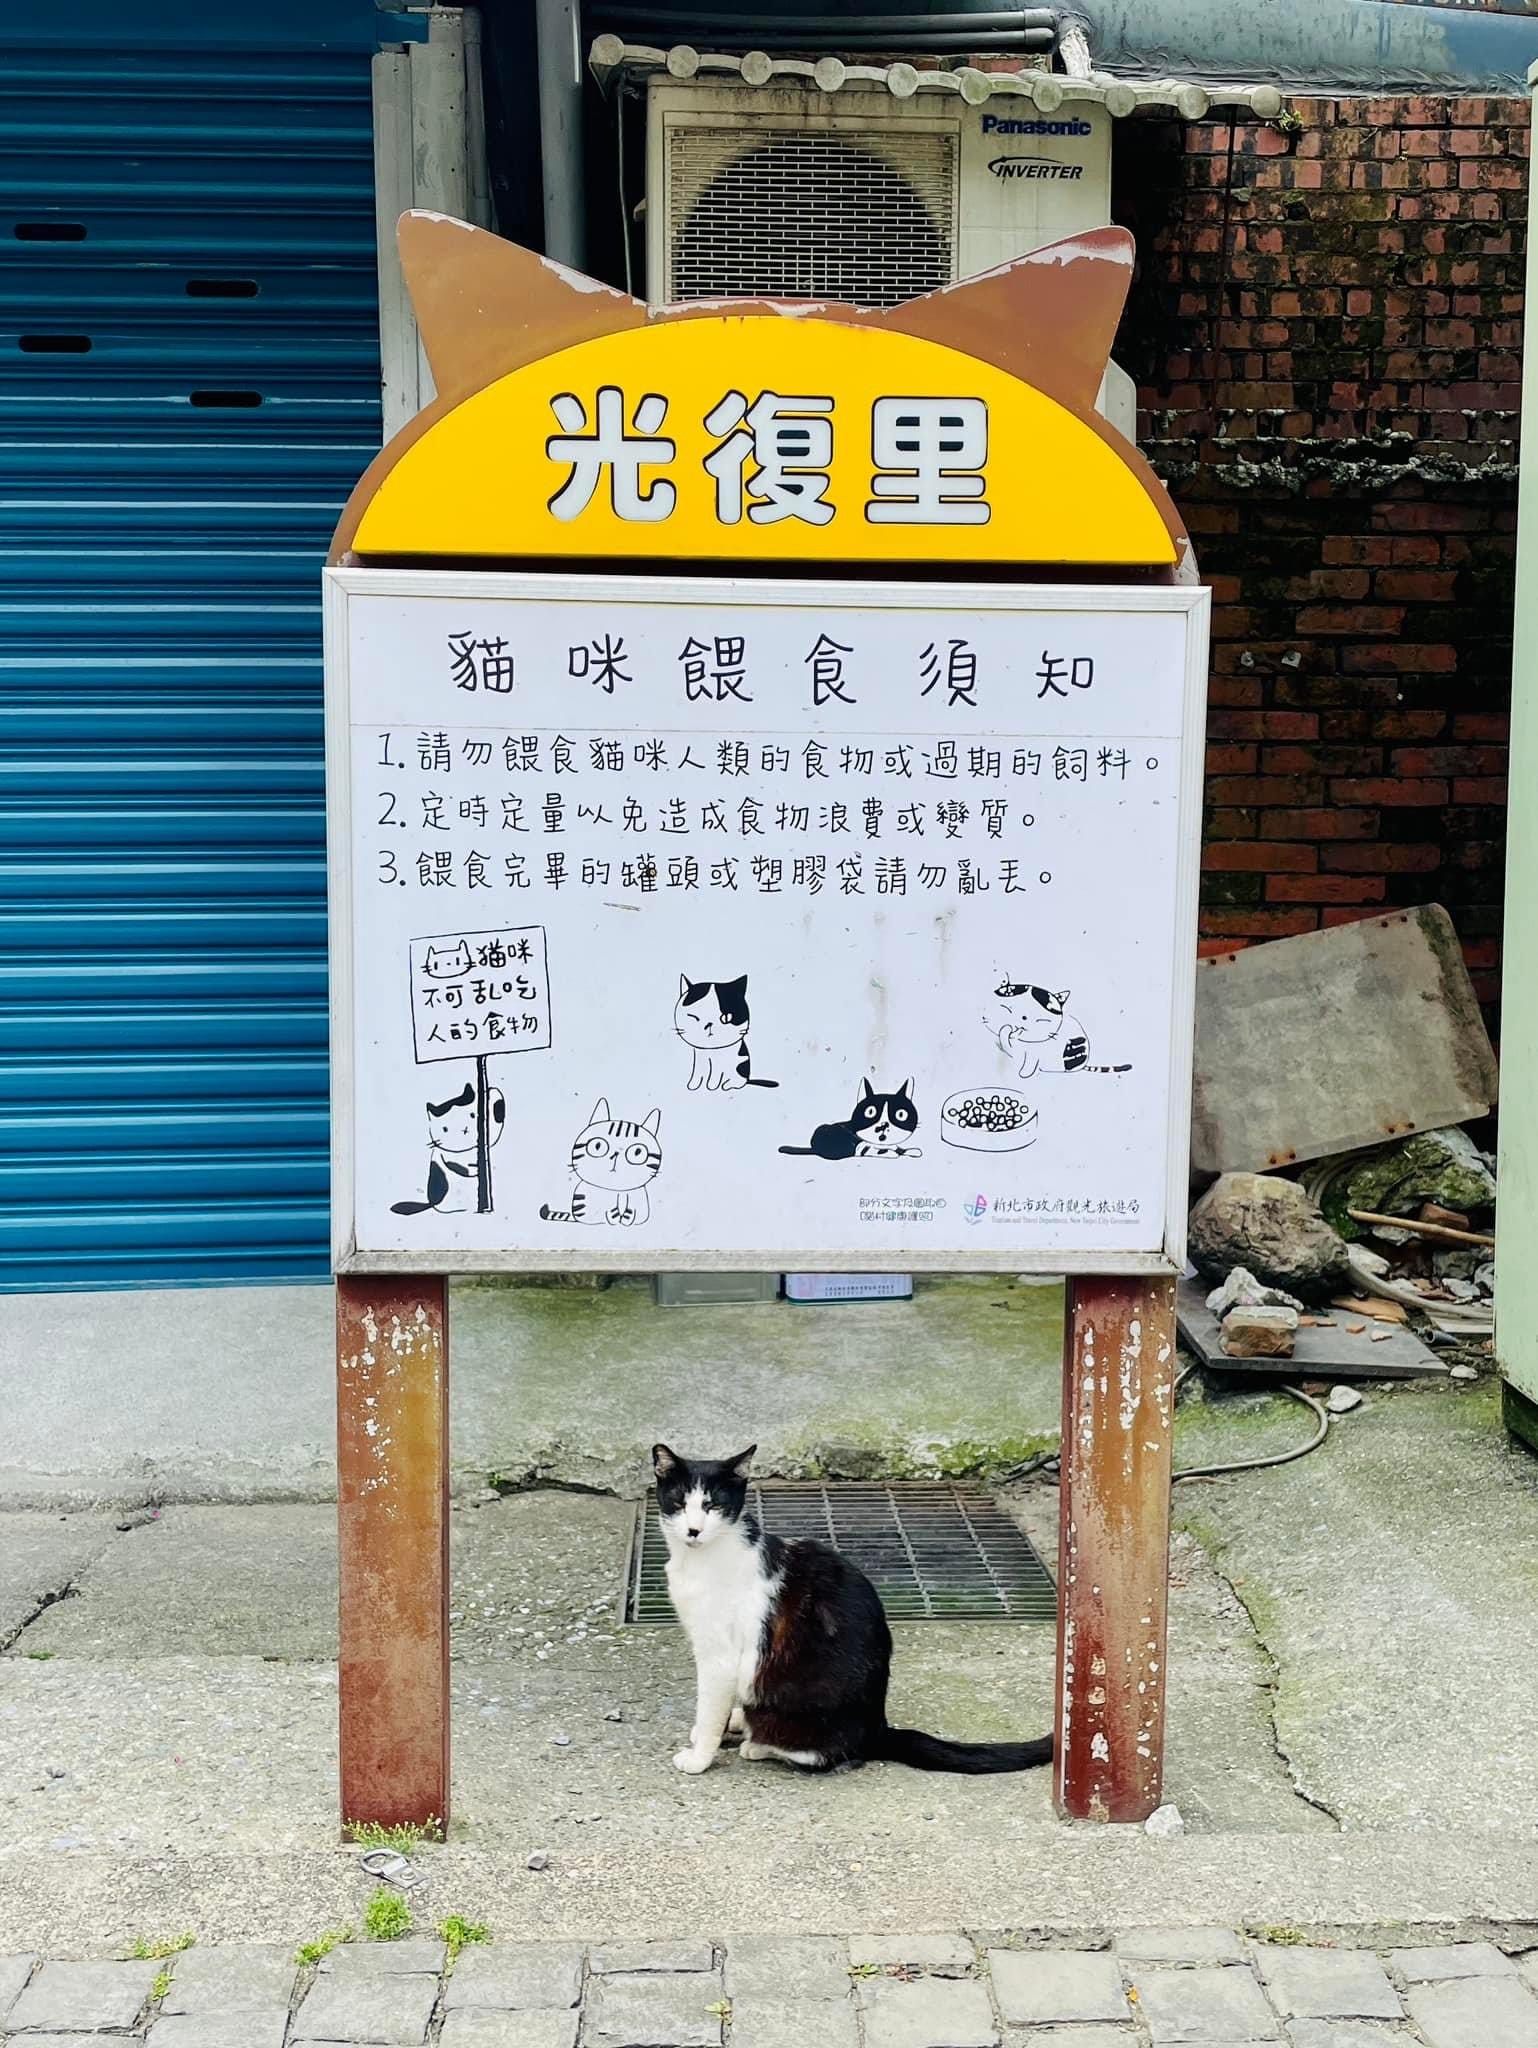 Panasonic
INVERTER
光復里
貓咪餵食須知
1.請勿餵食貓咪人類的食物或過期的飼料。
2.定時定量以免造成食物浪費或變質。
3.餵食完畢的罐頭或塑膠袋請勿亂丟。
貓咪
不可乱吃
人的食物
新北市政府觀光旅遊局
Tourism and Travel Department, New Taipei City Government